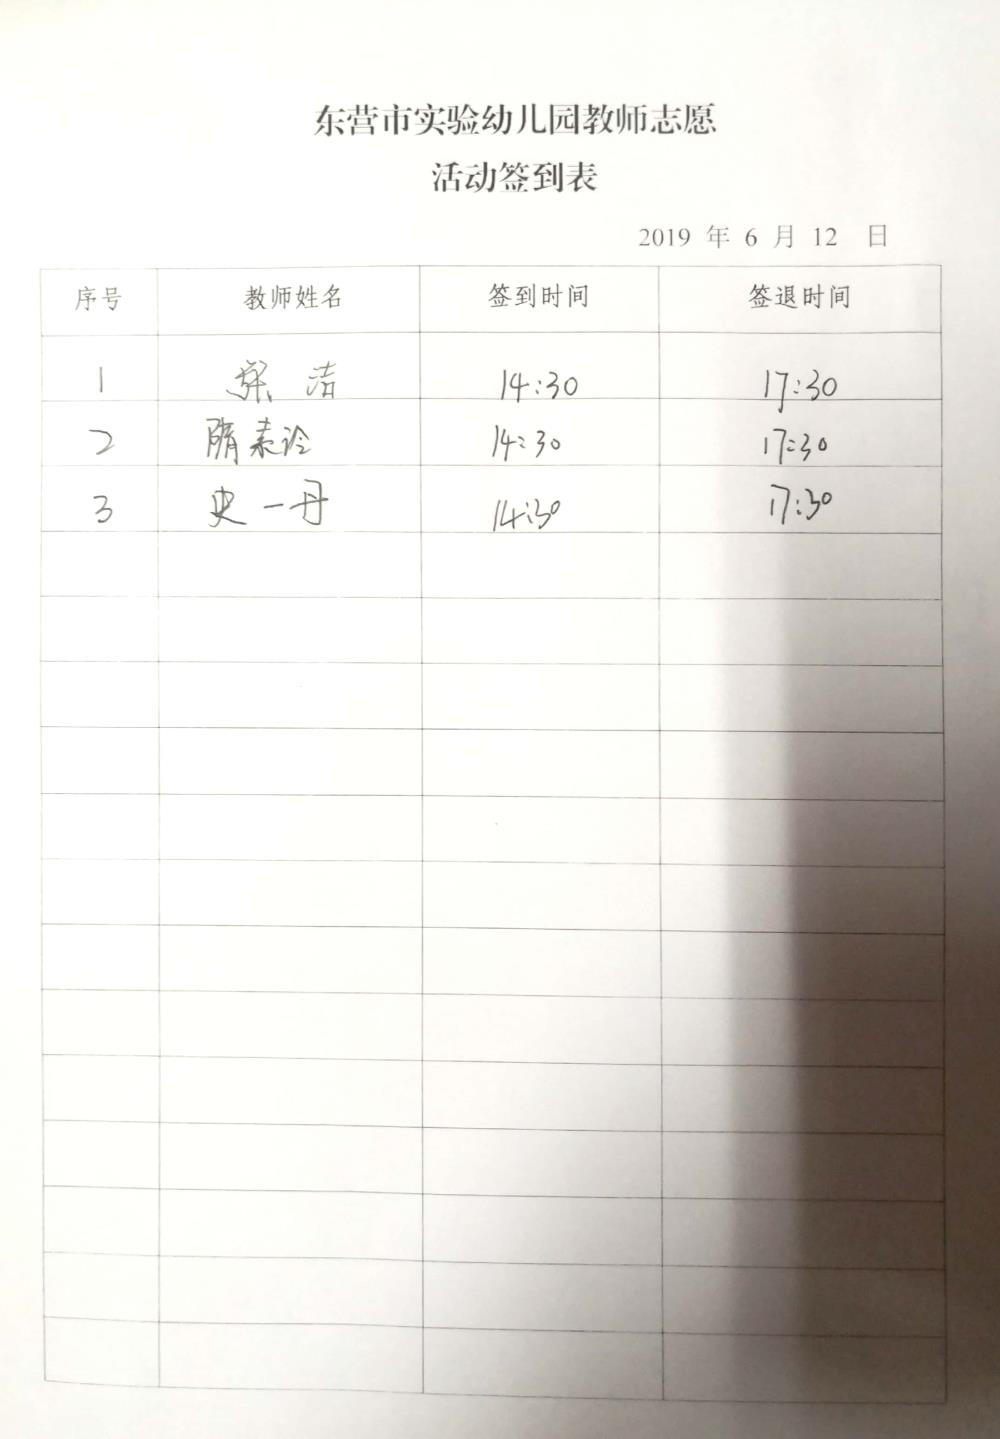 东营市实验幼儿园教师志愿
活动签到表
2019 年 6 月 12 日
序号 教师姓名 签到时间 签退时间
1 洁 14:30 17:30
2 隋素玲 14:30 17:30
3 史一丹 14:30 17:30